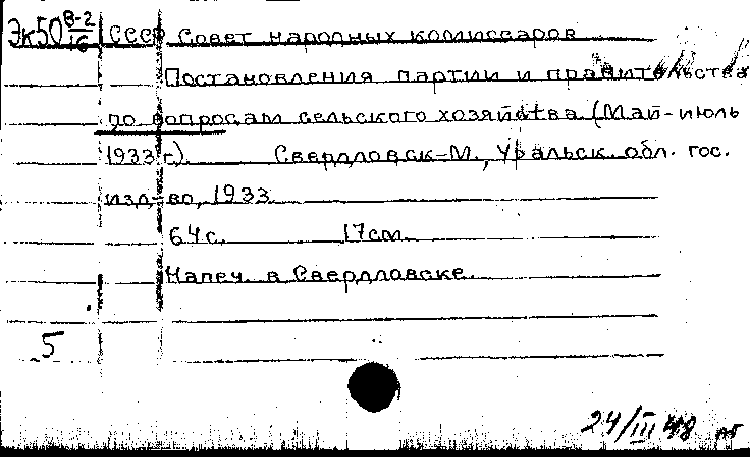 Эк50 В-2/16 СССР Совет народных комиссаров
Постановления партии и правительства
по вопросам сельского хозяйства (Май-июль
1933 г.). Свердловск-М., Уральск. обл. гос.
изд-во, 1933
64 с. 17 см.
Напеч. в Свердловске.
5
24/III 48